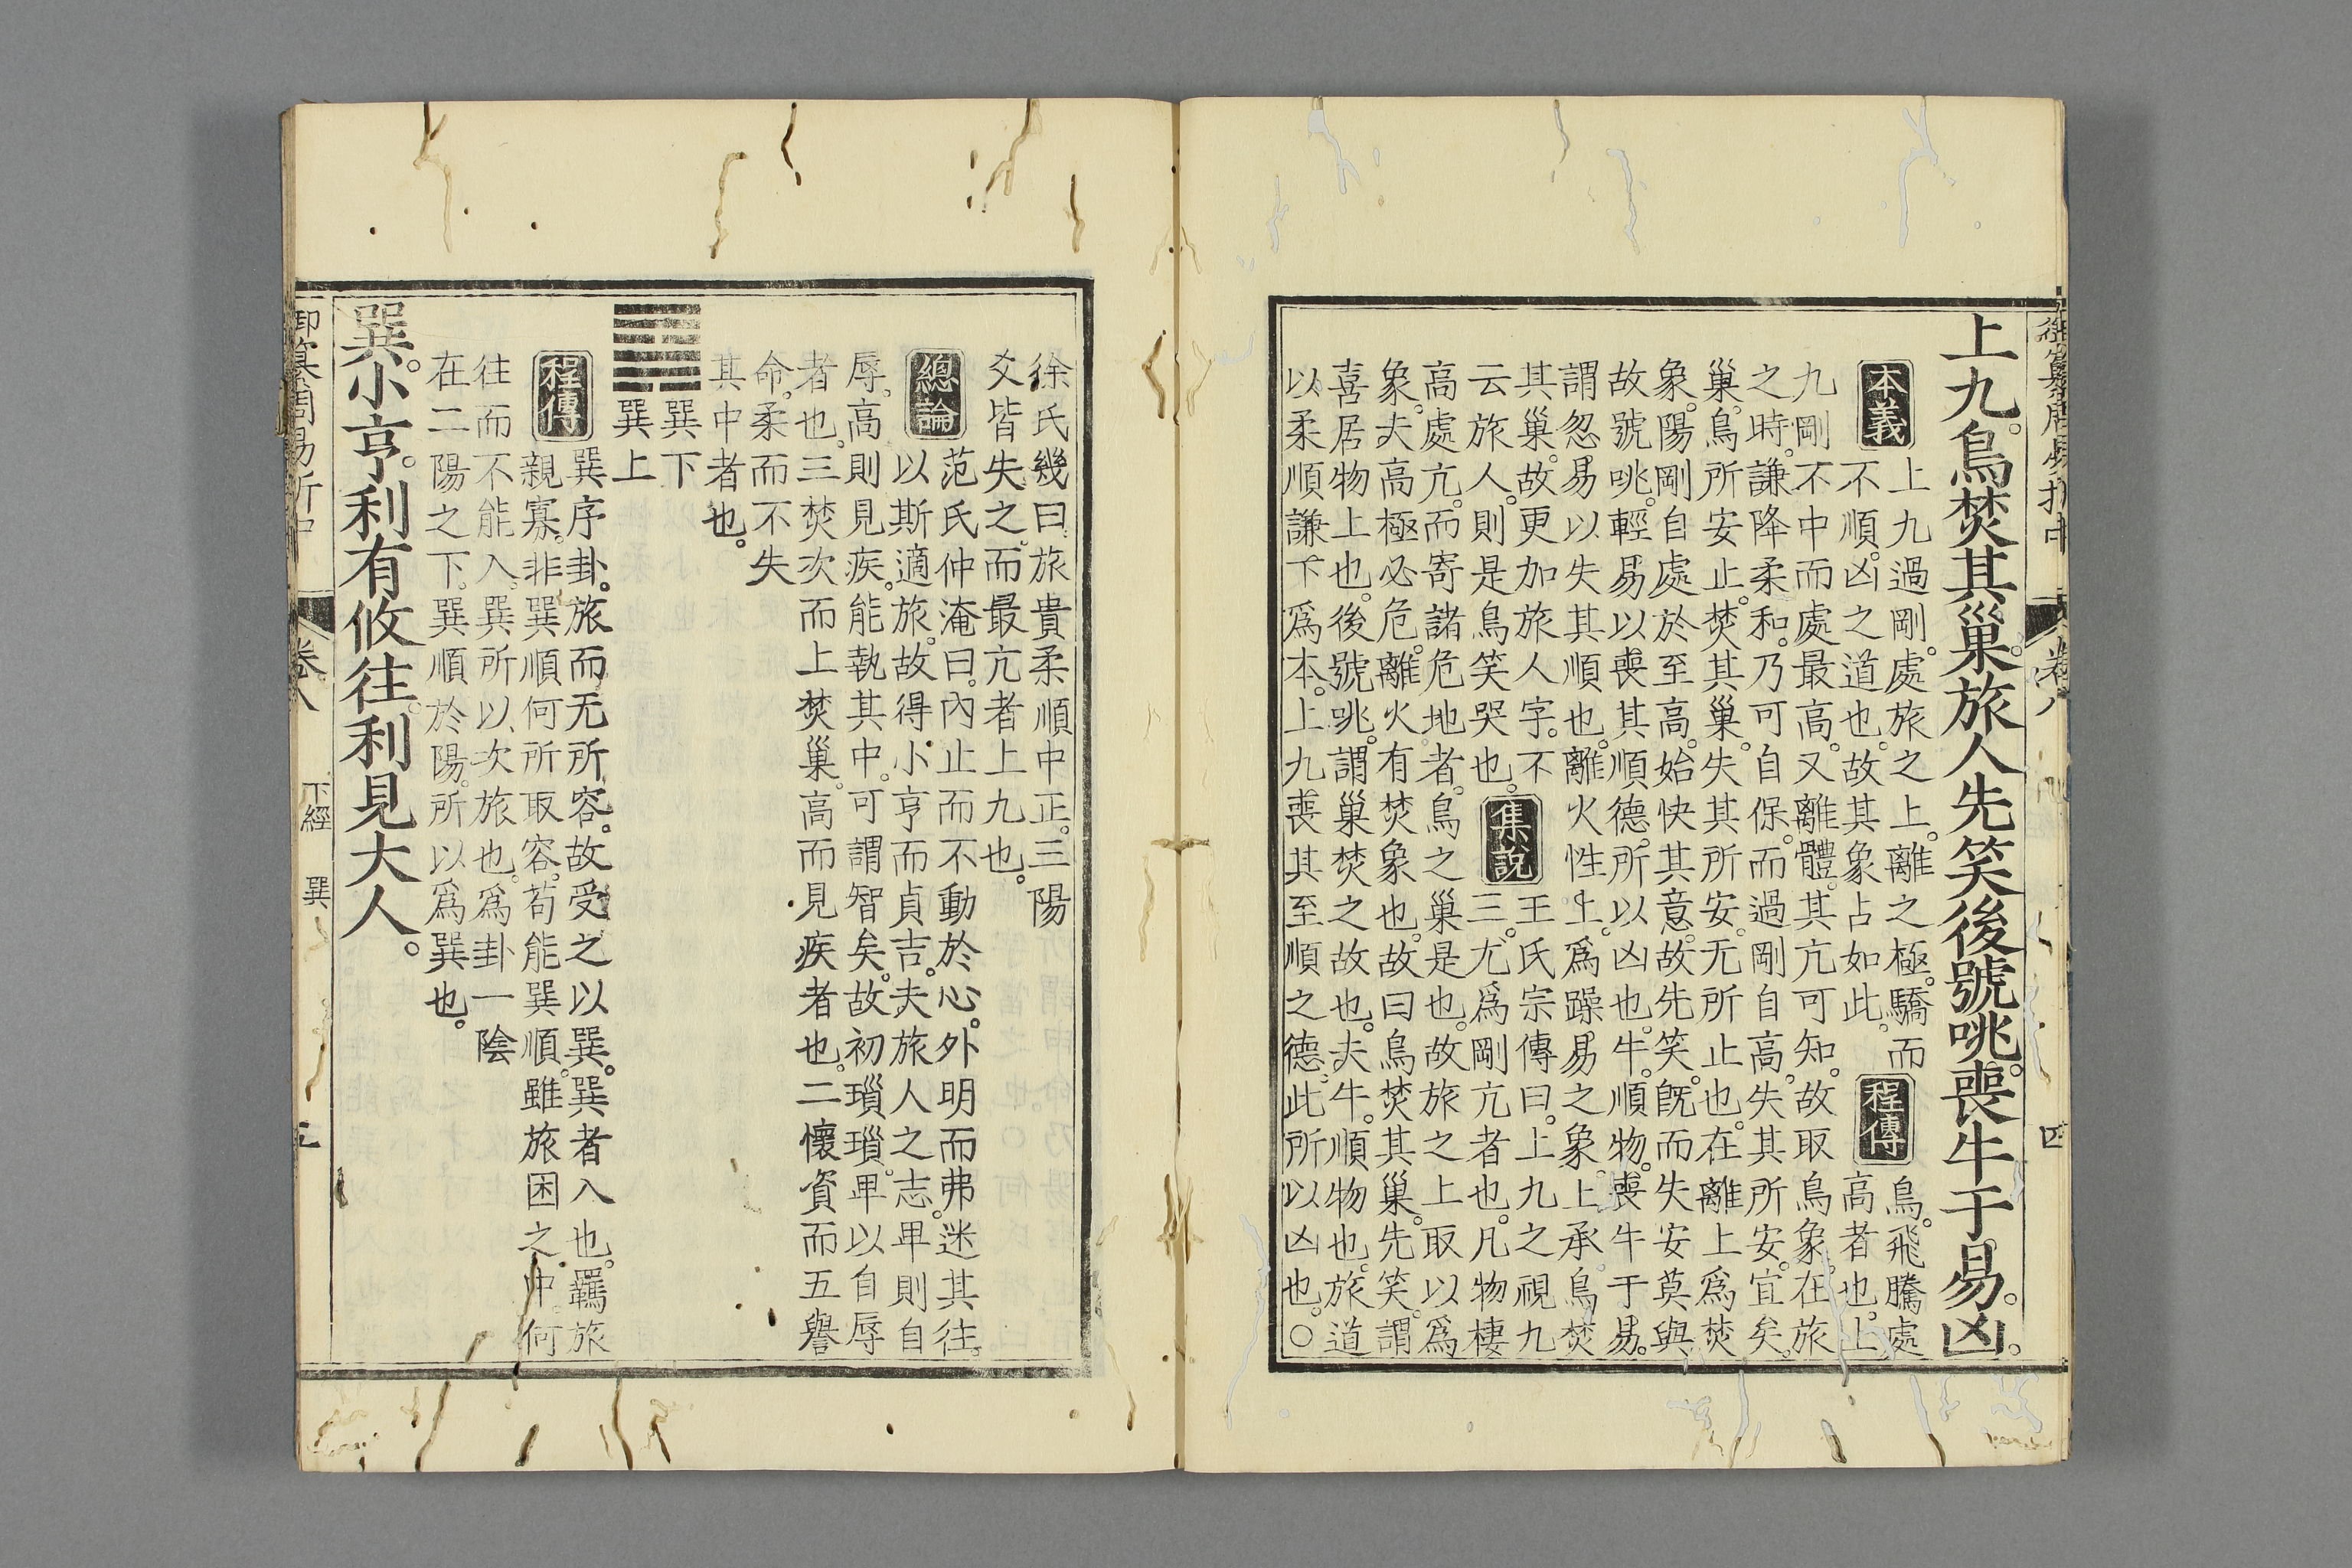 上九。鳥焚其巢。旅人先笑後號咷。喪牛于易。凶。
本義
上九過剛。處旅之上。離之極。驕而
不順。凶之道也。故其象占如此。
程傳
鳥。飛騰處
高者也。上
九剛不中而處最高。又離體。其亢可知。故取鳥象。在旅
之時。謙降柔和。乃可自保。而過剛自高。失其所安。宜矣。
巢。鳥所安止。焚其巢。失其所安。无所止也。在離上爲焚
象。陽剛自處於至高。始快其意。故先笑。旣而失安莫與
故號咷。輕易以喪其順德。所以凶也。牛。順物。喪牛于易。
謂忽易以失其順也。離火性上。爲躁易之象。上承鳥焚
其巢。故更加旅人字。不
云旅人。則是鳥笑哭也。
集說
王氏宗傳曰。上九之視九
三。尤爲剛亢者也。凡物棲
高處亢。而寄諸危地者。鳥之巢是也。故旅之上取以爲
象。夫高極必危。離火有焚象也。故曰鳥焚其巢。先笑。謂
喜居物上也。後號咷。謂巢焚之故也。夫牛。順物也。旅道
以柔順謙下爲本。上九喪其至順之德。此所以凶也。○
徐氏幾曰旅貴柔順中正。三陽
爻皆失之。而最亢者上九也。
總論
范氏仲淹曰。內止而不動於心。外明而弗迷其往。
以斯適旅。故得小亨而貞吉。夫旅人之志。卑則自
辱。高則見疾。能執其中。可謂智矣。故初瑣瑣。卑以自辱
者也。三焚次而上焚巢。高而見疾者也。二懷資而五譽
命。柔而不失
其中者也。
巽下
巽上
程傳
巽序卦。旅而无所容。故受之以巽。巽者入也。羈旅
親寡。非巽順何所取容。苟能巽順。雖旅困之中。何
往而不能入。巽所以次旅也。爲卦一陰
在二陽之下。巽順於陽。所以爲巽也。
巽。小亨。利有攸往。利見大人。
卷八 下經 巽